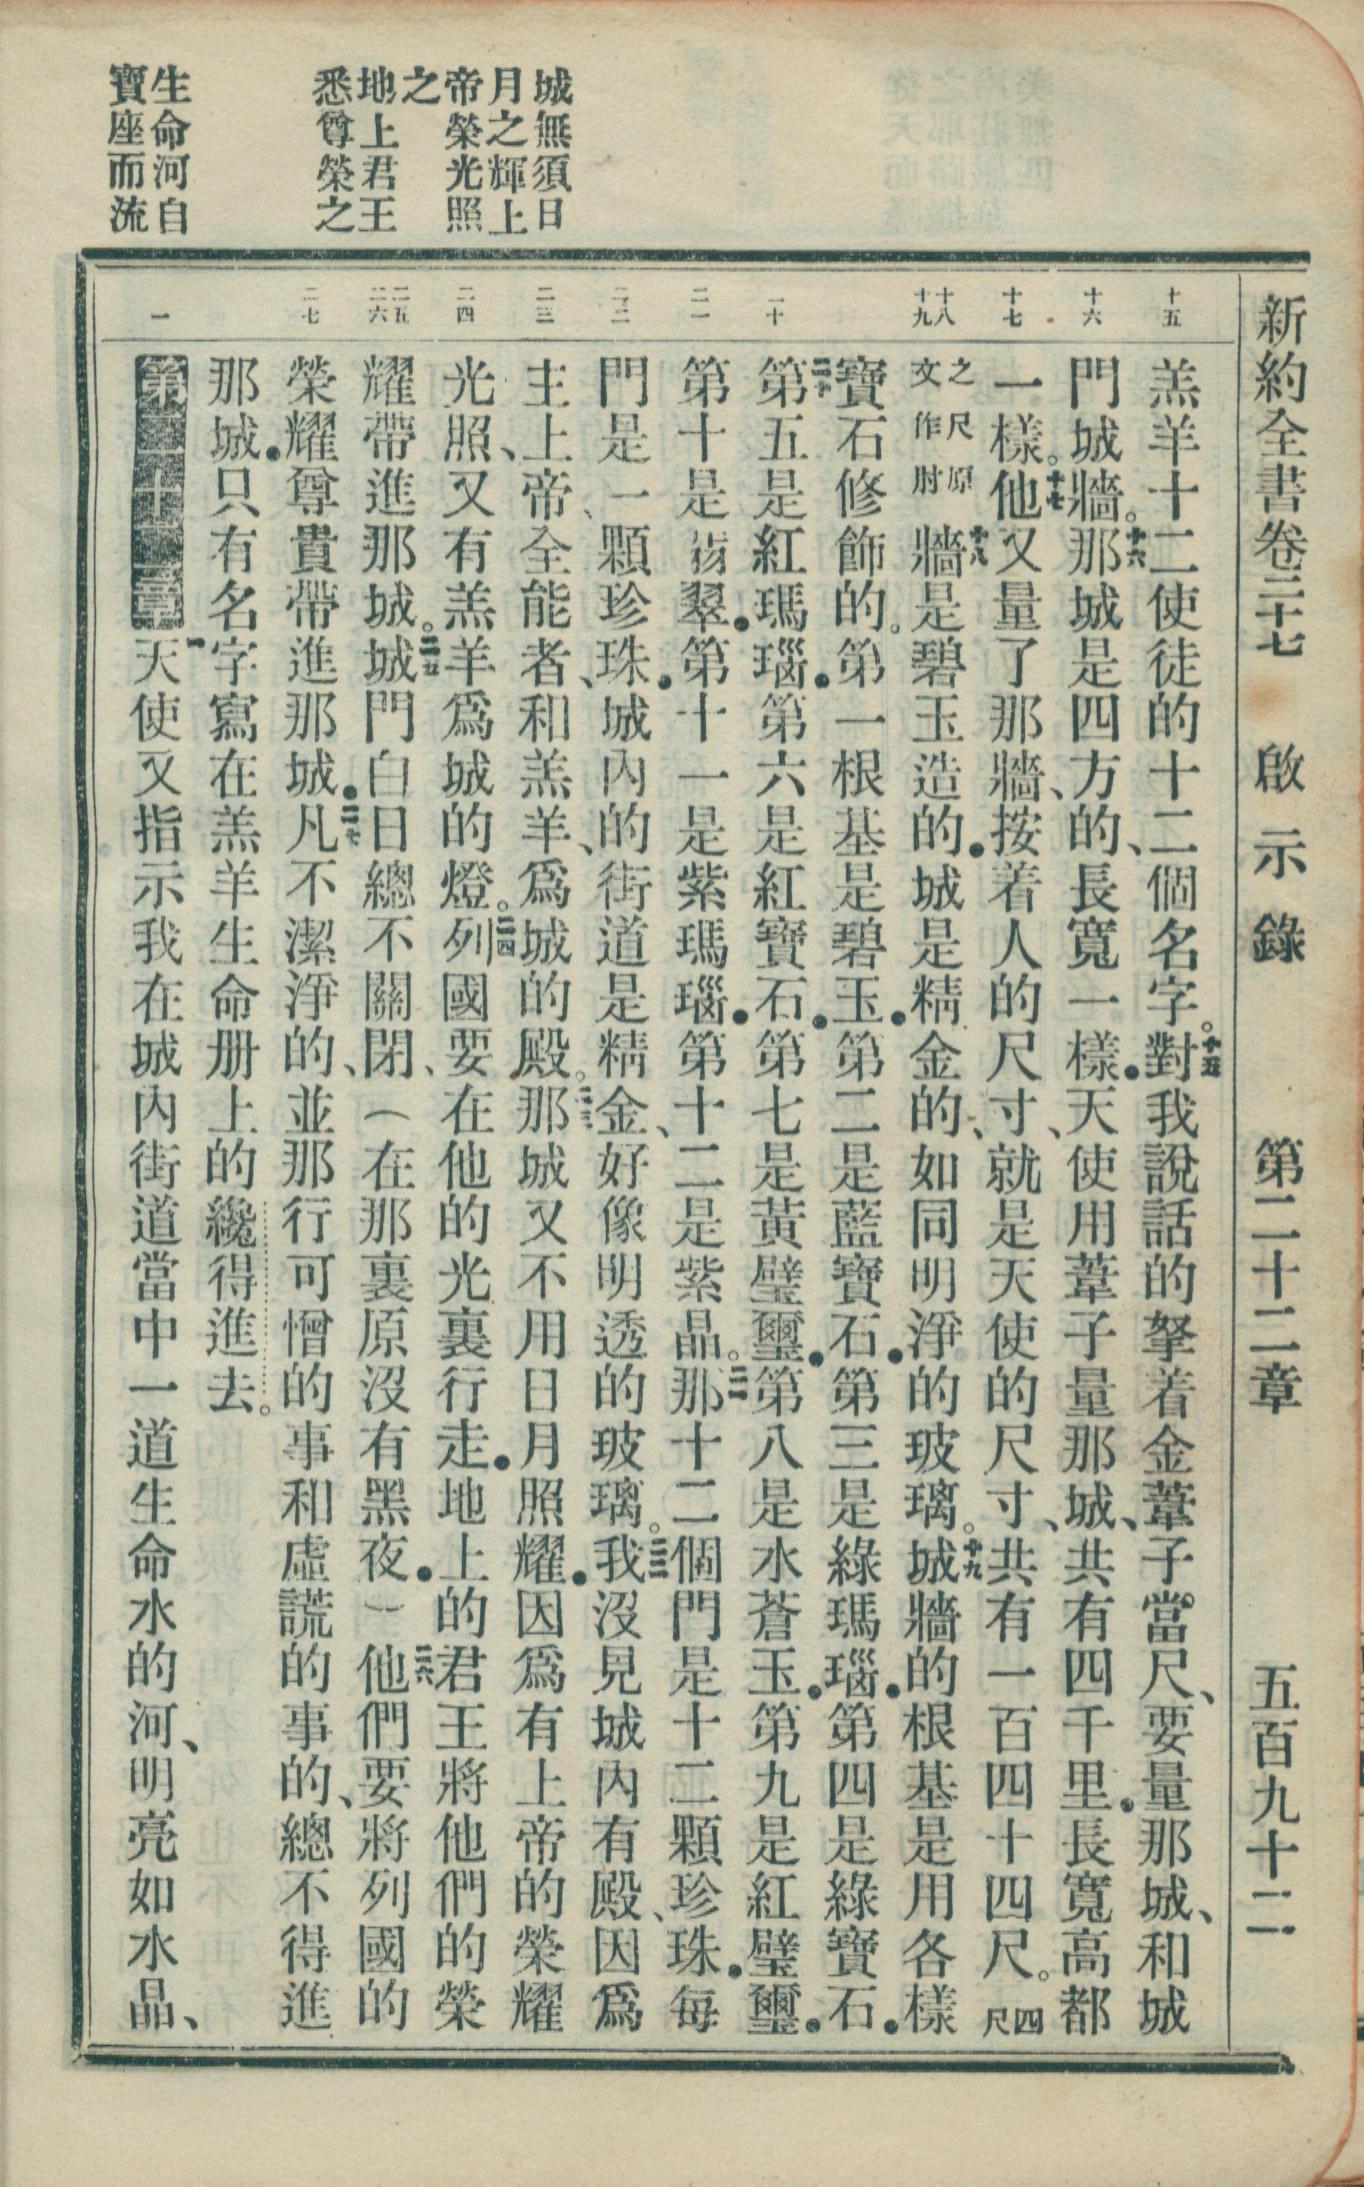 新約全書卷二十七 啟示錄 第二十二章 五百九十二
城無須日
月之輝上
帝榮光照
之
地上君王
悉尊榮之
生命河自
寶座而流
十五
十六
十七
十八
十九
二十
二一
二二
二三
二四
二五
二六
二七
一
羔羊十二使徒的十二個名字。十五對我說話的拏着金葦子當尺、要量那城、和城
門城牆。十六那城是四方的、長寬一樣．天使用葦子量那城、共有四千里．長寬高都
一樣。十七他又量了那牆、按着人的尺寸、就是天使的尺寸、共有一百四十四尺。四尺
之尺原文作肘十八牆是碧玉造的．城是精金的、如同明淨的玻璃。十九城牆的根基是用各樣
寶石修飾的。第一根基是碧玉．第二是藍寶石．第三是綠瑪瑙．第四是綠寶石．
二十第五是紅瑪瑙．第六是紅寶石．第七是黃璧璽．第八是水蒼玉．第九是紅璧璽．
第十是翡翠．第十一是紫瑪瑙．第十二是紫晶。二一那十二個門是十二顆珍珠．每
門是一顆珍珠．城內的街道是精金、好像明透的玻璃。二二我沒見城內有殿、因爲
主上帝、全能者、和羔羊、爲城的殿。二三那城又不用日月照耀．因爲有上帝的榮耀
光照、又有羔羊爲城的燈。二四列國要在他的光裏行走．地上的君王將他們的榮
耀帶進那城。二五城門白日總不關閉、（在那裏原沒有黑夜．）二六他們要將列國的
榮耀尊貴帶進那城．二七凡不潔淨的、並那行可憎的事和虛謊的事的、總不得進
那城．只有名字寫在羔羊生命册上的纔得進去。
第二十二章一天使又指示我在城內街道當中一道生命水的河、明亮如水晶、